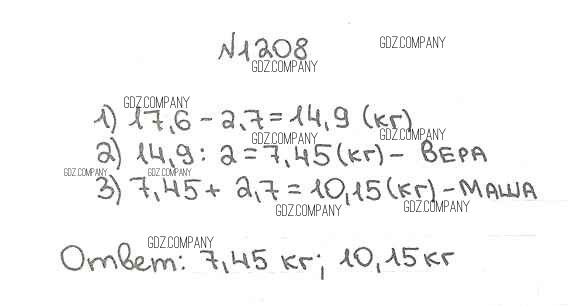 №1208
GDZ.COMPANY
GDZ.COMPANY
GDZ.COMPANY
1) 17,6 - 2,7 = 14,9 (кг)
GDZ.COMPANY
GDZ.COMPANY
2) 14,9 : 2 = 7,45 (кг) - ВЕРА
GDZ.COMPANY
GDZ.COMPANY
3) 7,45 + 2,7 = 10,15 (кг) - МАША
GDZ.COMPANY
GDZ.COMPANY
GDZ.COMPANY
Ответ: 7,45 кг; 10,15 кг